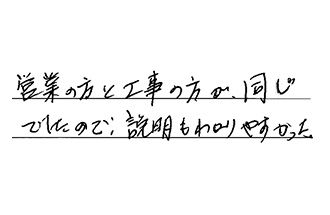 営業の方と工事の方が、同じ
でしたので、説明もわかりやすかった